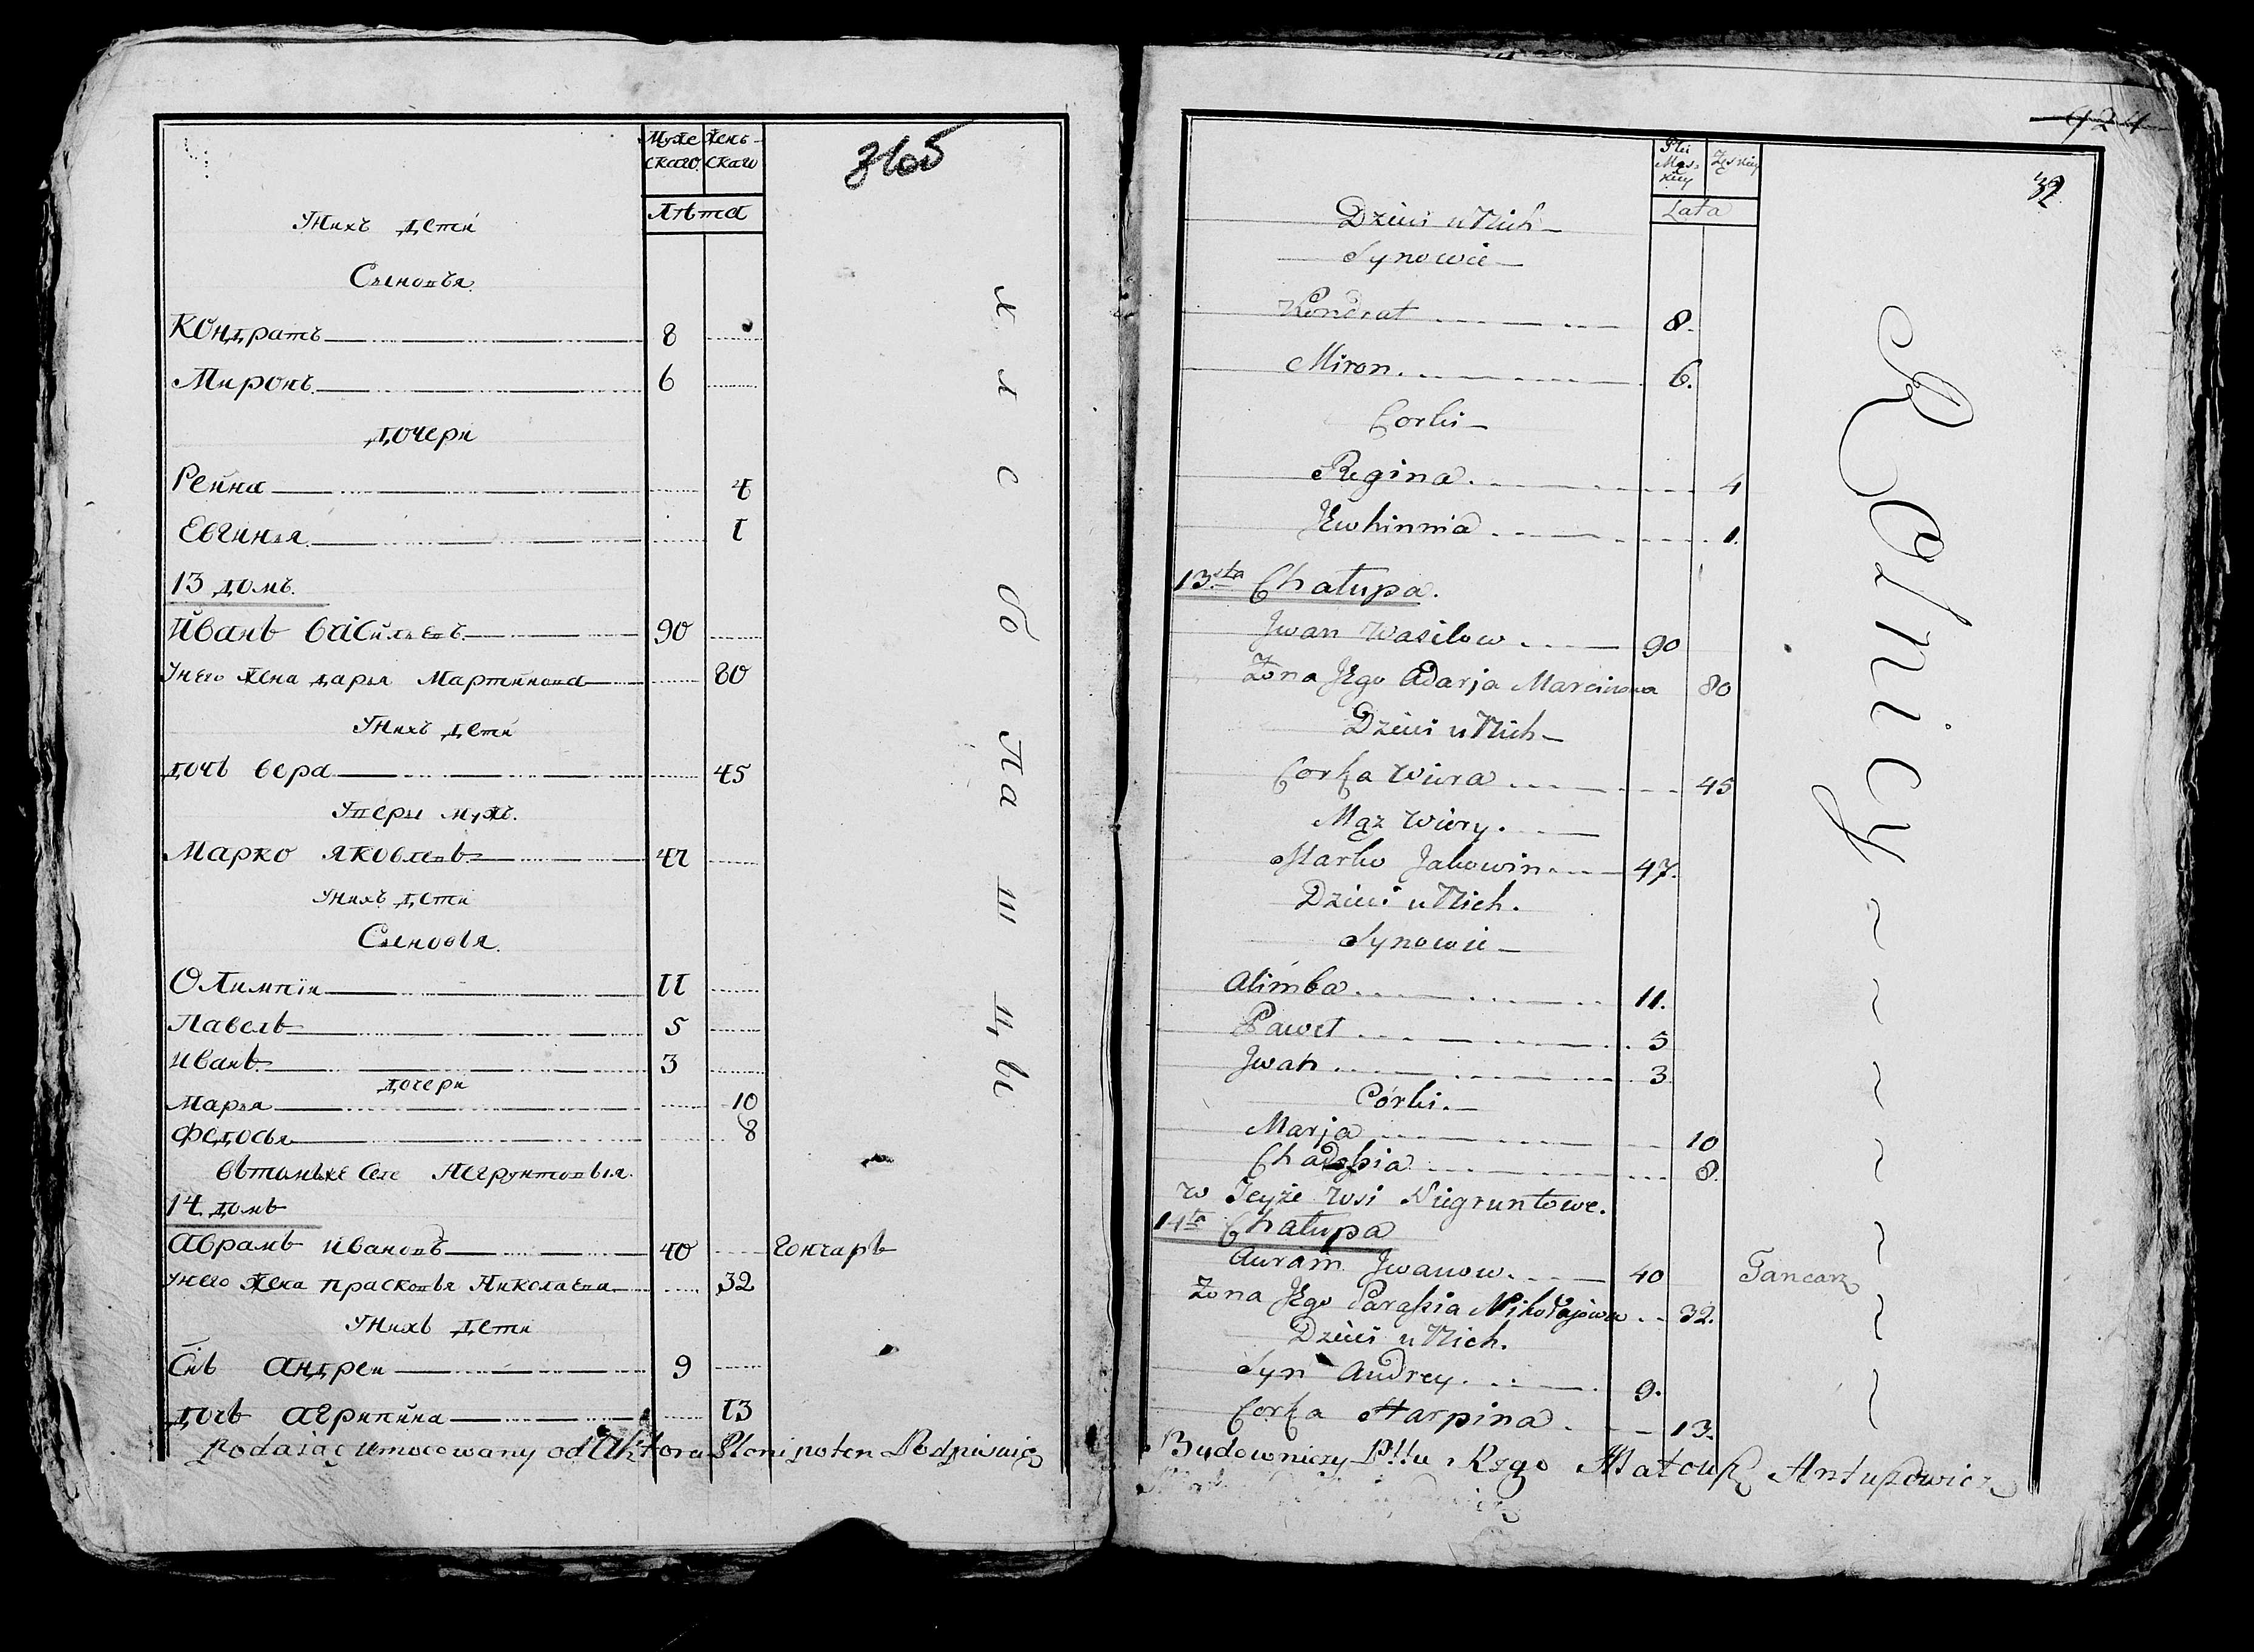 Муже Жень-
скаго скаго
Лѣта
Унихъ дети
Сыновья
Кондратъ 8
Миронъ 6
дочери
Реина 4
Евгинья 1
13 домъ.
Иванъ Василъевъ 90
Унего жена дарья Мартинова 80
Унихъ дети
дочь вера 45
Уверы мужъ.
Марко яковлевъ 47
Унихъ дети
Сыновья
Олимпiи 11
Павелъ 5
иванъ 3
дочери
марья 10
федосья 8
втомъже селе Негрунтовыя
14 домъ
абрамъ ивановъ 40 гончаръ
Унего жена прасковья Николаева 32
Унихъ дети
Снъ андреи 9
дочь агрипина 13
хлебопашцы
Podaiąc umocowany od Aktora Plenipoten Podpisuię
32
Płci Męskiey Żeńskiey
Lata
Dzieci u Nich
Synowie
Kondrat 8.
Miron 6.
Corki
Regina 4
Jewhinnia 1.
13sta Chałupa.
Jwan Wasilow 90
Żona Jego Adarja Marcinowa 80
Dzieci u Nich
Corka Wiera 45
Mąż Wiery.
Marko Jakowin 47.
Dzieci u Nich.
Synowie
Alimba 11.
Paweł 5
Jwan 3
Córki.
Marja 10
Chadosia 8.
w Teyże wsi Niegruntowe.
14ta Chałupa
Auram Jwanow. 40 Gancarz
Żona Jego Parasia Mikołajowa 32.
Dzieci u Nich.
Syn Andrey 9.
Corka Harpina 13.
Rolnicy
Budowniczy Pttu Rzgo